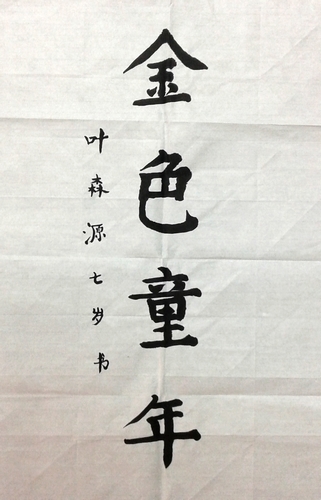 金色童年
叶森源七岁书